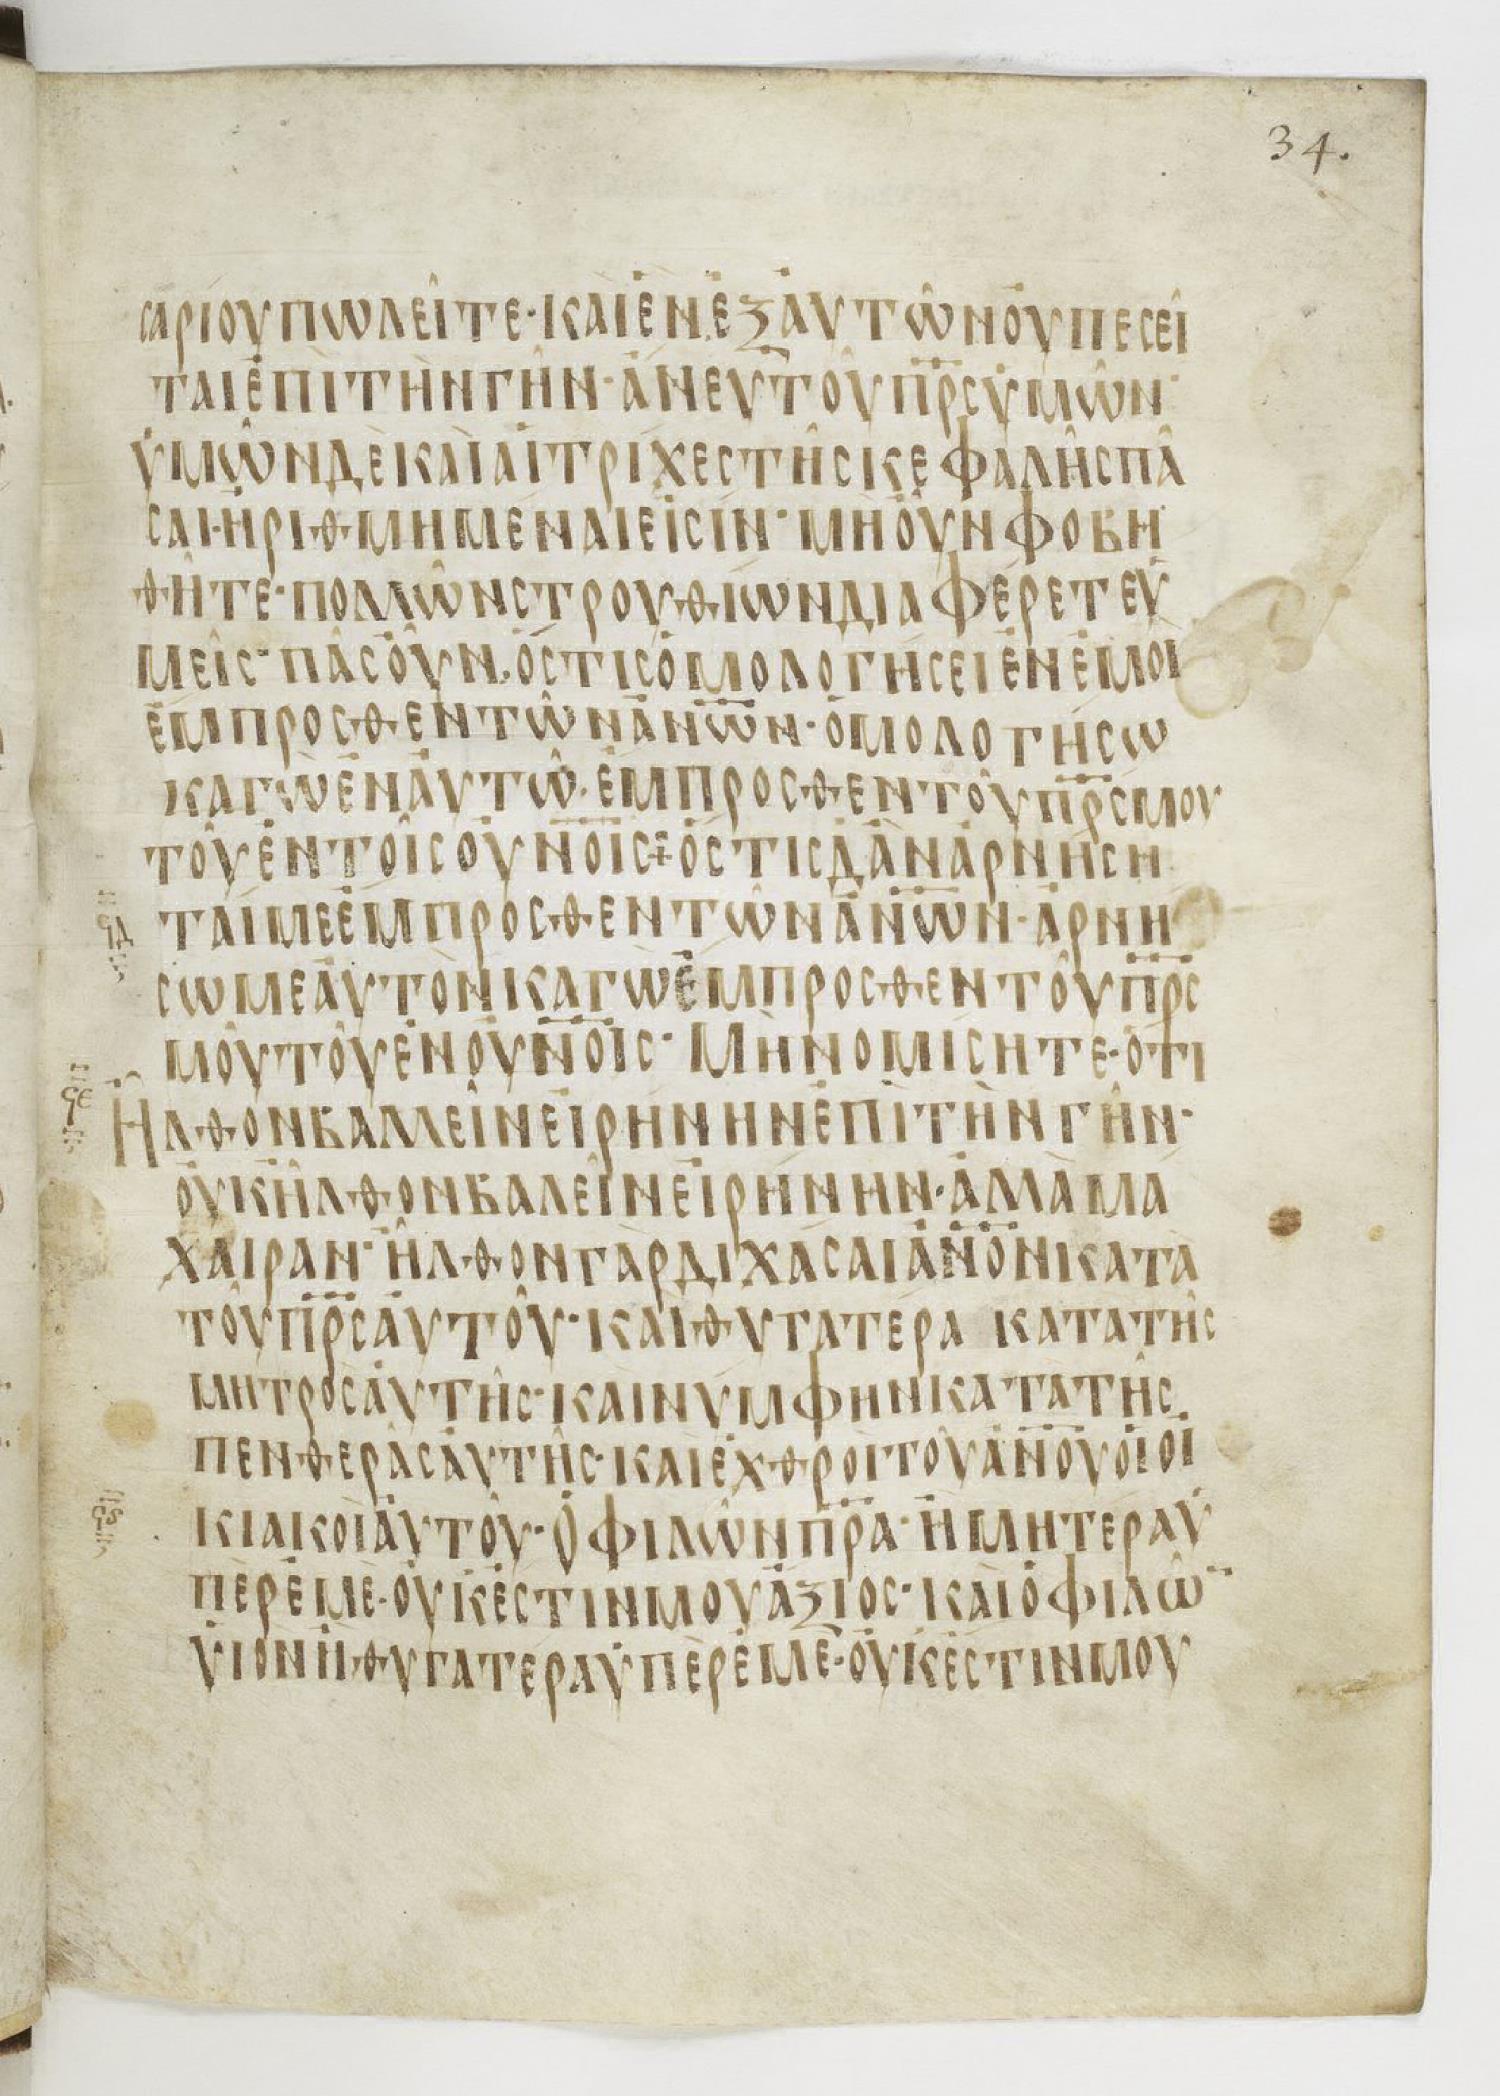 34.
σαρίου πωλεῖτε· καὶ ἓν ἐξ αὐτῶν οὐ πεσεῖ
ται ἐπὶ τὴν γῆν· ἄνευ τοῦ πρς ὑμῶν·
ὑμῶν δὲ καὶ αἱ τρίχες τῆς κεφαλῆς πᾶ
σαι· ἠριθμημέναι εἰσίν· μὴ οὖν φοβη
θῆτε· πολλῶν στρουθίων διαφέρετε ὑ
μεῖς· πᾶς οὖν, ὅστις ὁμολογήσει ἐν ἐμοὶ
ἔμπροσθεν τῶν ἀνων· ὁμολογήσω
καγὼ ἐν αὐτῷ· ἔμπροσθεν τοῦ πρς μου
τοῦ ἐν τοῖς οὐνοις ⁘ ὅστις δ' ἂν ἀρνήση
ταί με ἔμπροσθεν τῶν ἀνων· ἀρνή
σωμε αὐτὸν καγὼ ἔμπροσθεν τοῦ πρς
μοῦ τοῦ ἐν οὐνοις· Μὴ νομίσητε· ὅτι
Ἦλθον βαλλεῖν εἰρήνην ἐπὶ τὴν γῆν·
οὐκ ἦλθον βαλεῖν εἰρήνην· ἀλλὰ μά
χαιραν· ἦλθον γὰρ διχάσαι ἀνον κατὰ
τοῦ πρς αὐτοῦ· καὶ θυγατέρα κατὰ τῆς
μητρὸς αὐτῆς· καὶ νύμφην κατὰ τῆς
πενθερᾶς αὐτῆς· καὶ ἐχθροὶ τοῦ ἀνου οἱ οἰ
κιακοὶ αὐτοῦ· Ὁ φιλῶν πρα· ἢ μητέρα ὑ
πὲρ ἐμὲ· οὐκ ἔστιν μου ἄξιος· καὶ ὁ φιλῶ̄
υἱὸν ἢ θυγατέρα ὑπὲρ ἐμὲ· οὐκ ἔστιν μου
ϟδ
ϟε
ϟς